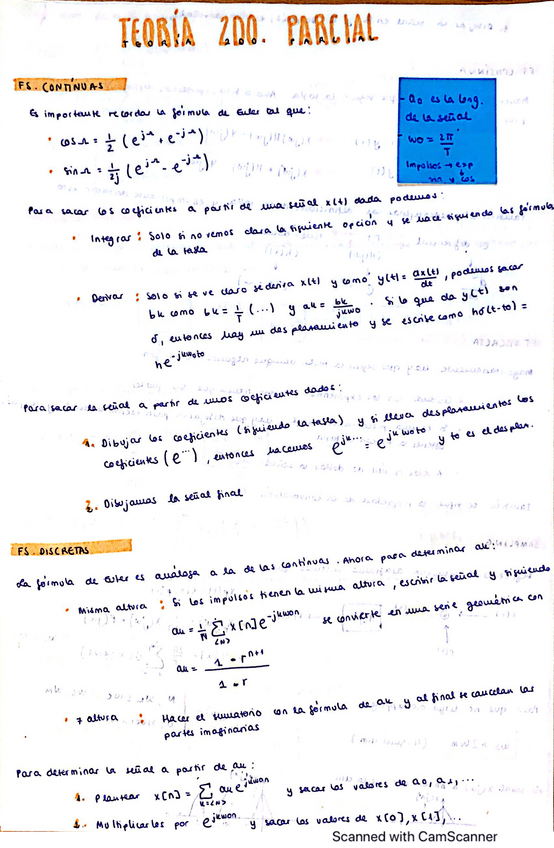 TEORÍA 2DO. PARCIAL
F.S. CONTÍNUAS
- a0 es la long.
de la señal
- w0 = 2π/T
Impulsos → exp
sin y cos
Es importante recordar la fórmula de Euler tal que:
• cos Ω = 1/2 (e^jΩ + e^-jΩ)
• sin Ω = 1/2j (e^jΩ - e^-jΩ)
Para sacar los coeficientes a partir de una señal x(t) dada podemos:
• Integrar: Solo si no vemos clara la siguiente opción y se hace siguiendo las fórmulas
de la tabla
• Derivar: Solo si se ve claro se deriva x(t) y como y(t) = dx(t)/dt, podemos sacar
bk como bk = 1/T (...) y ak = bk/jkw0. Si lo que da y(t) son
δ, entonces hay un desplazamiento y se escribe como hδ(t-t0) =
he^-jkw0t0
Para sacar la señal a partir de unos coeficientes dados:
1. Dibujar los coeficientes (siguiendo la tabla) y si lleva desplazamientos los
coeficientes (e^...), entonces hacemos e^jk... = e^jkw0t0 y t0 es el desplaz.
2. Dibujamos la señal final
FS. DISCRETAS
La fórmula de Euler es análoga a la de las contínuas. Ahora para determinar ak:
• Misma altura: Si los impulsos tienen la misma altura, escribir la señal y siguiendo
ak = 1/N Σ<N> x[n]e^-jkw0n se convierte en una serie geométrica con
ak = 1 - r^n+1 / 1 - r
• ≠ altura: Hacer el sumatorio con la fórmula de ak y al final se cancelan las
partes imaginarias
Para determinar la señal a partir de ak:
1. Plantear x[n] = Σk=<N> ak e^jkw0n y sacar los valores de a0, a1, ...
2. Multiplicarlos por e^jkw0n y sacar los valores de x[0], x[1], ...
Scanned with CamScanner